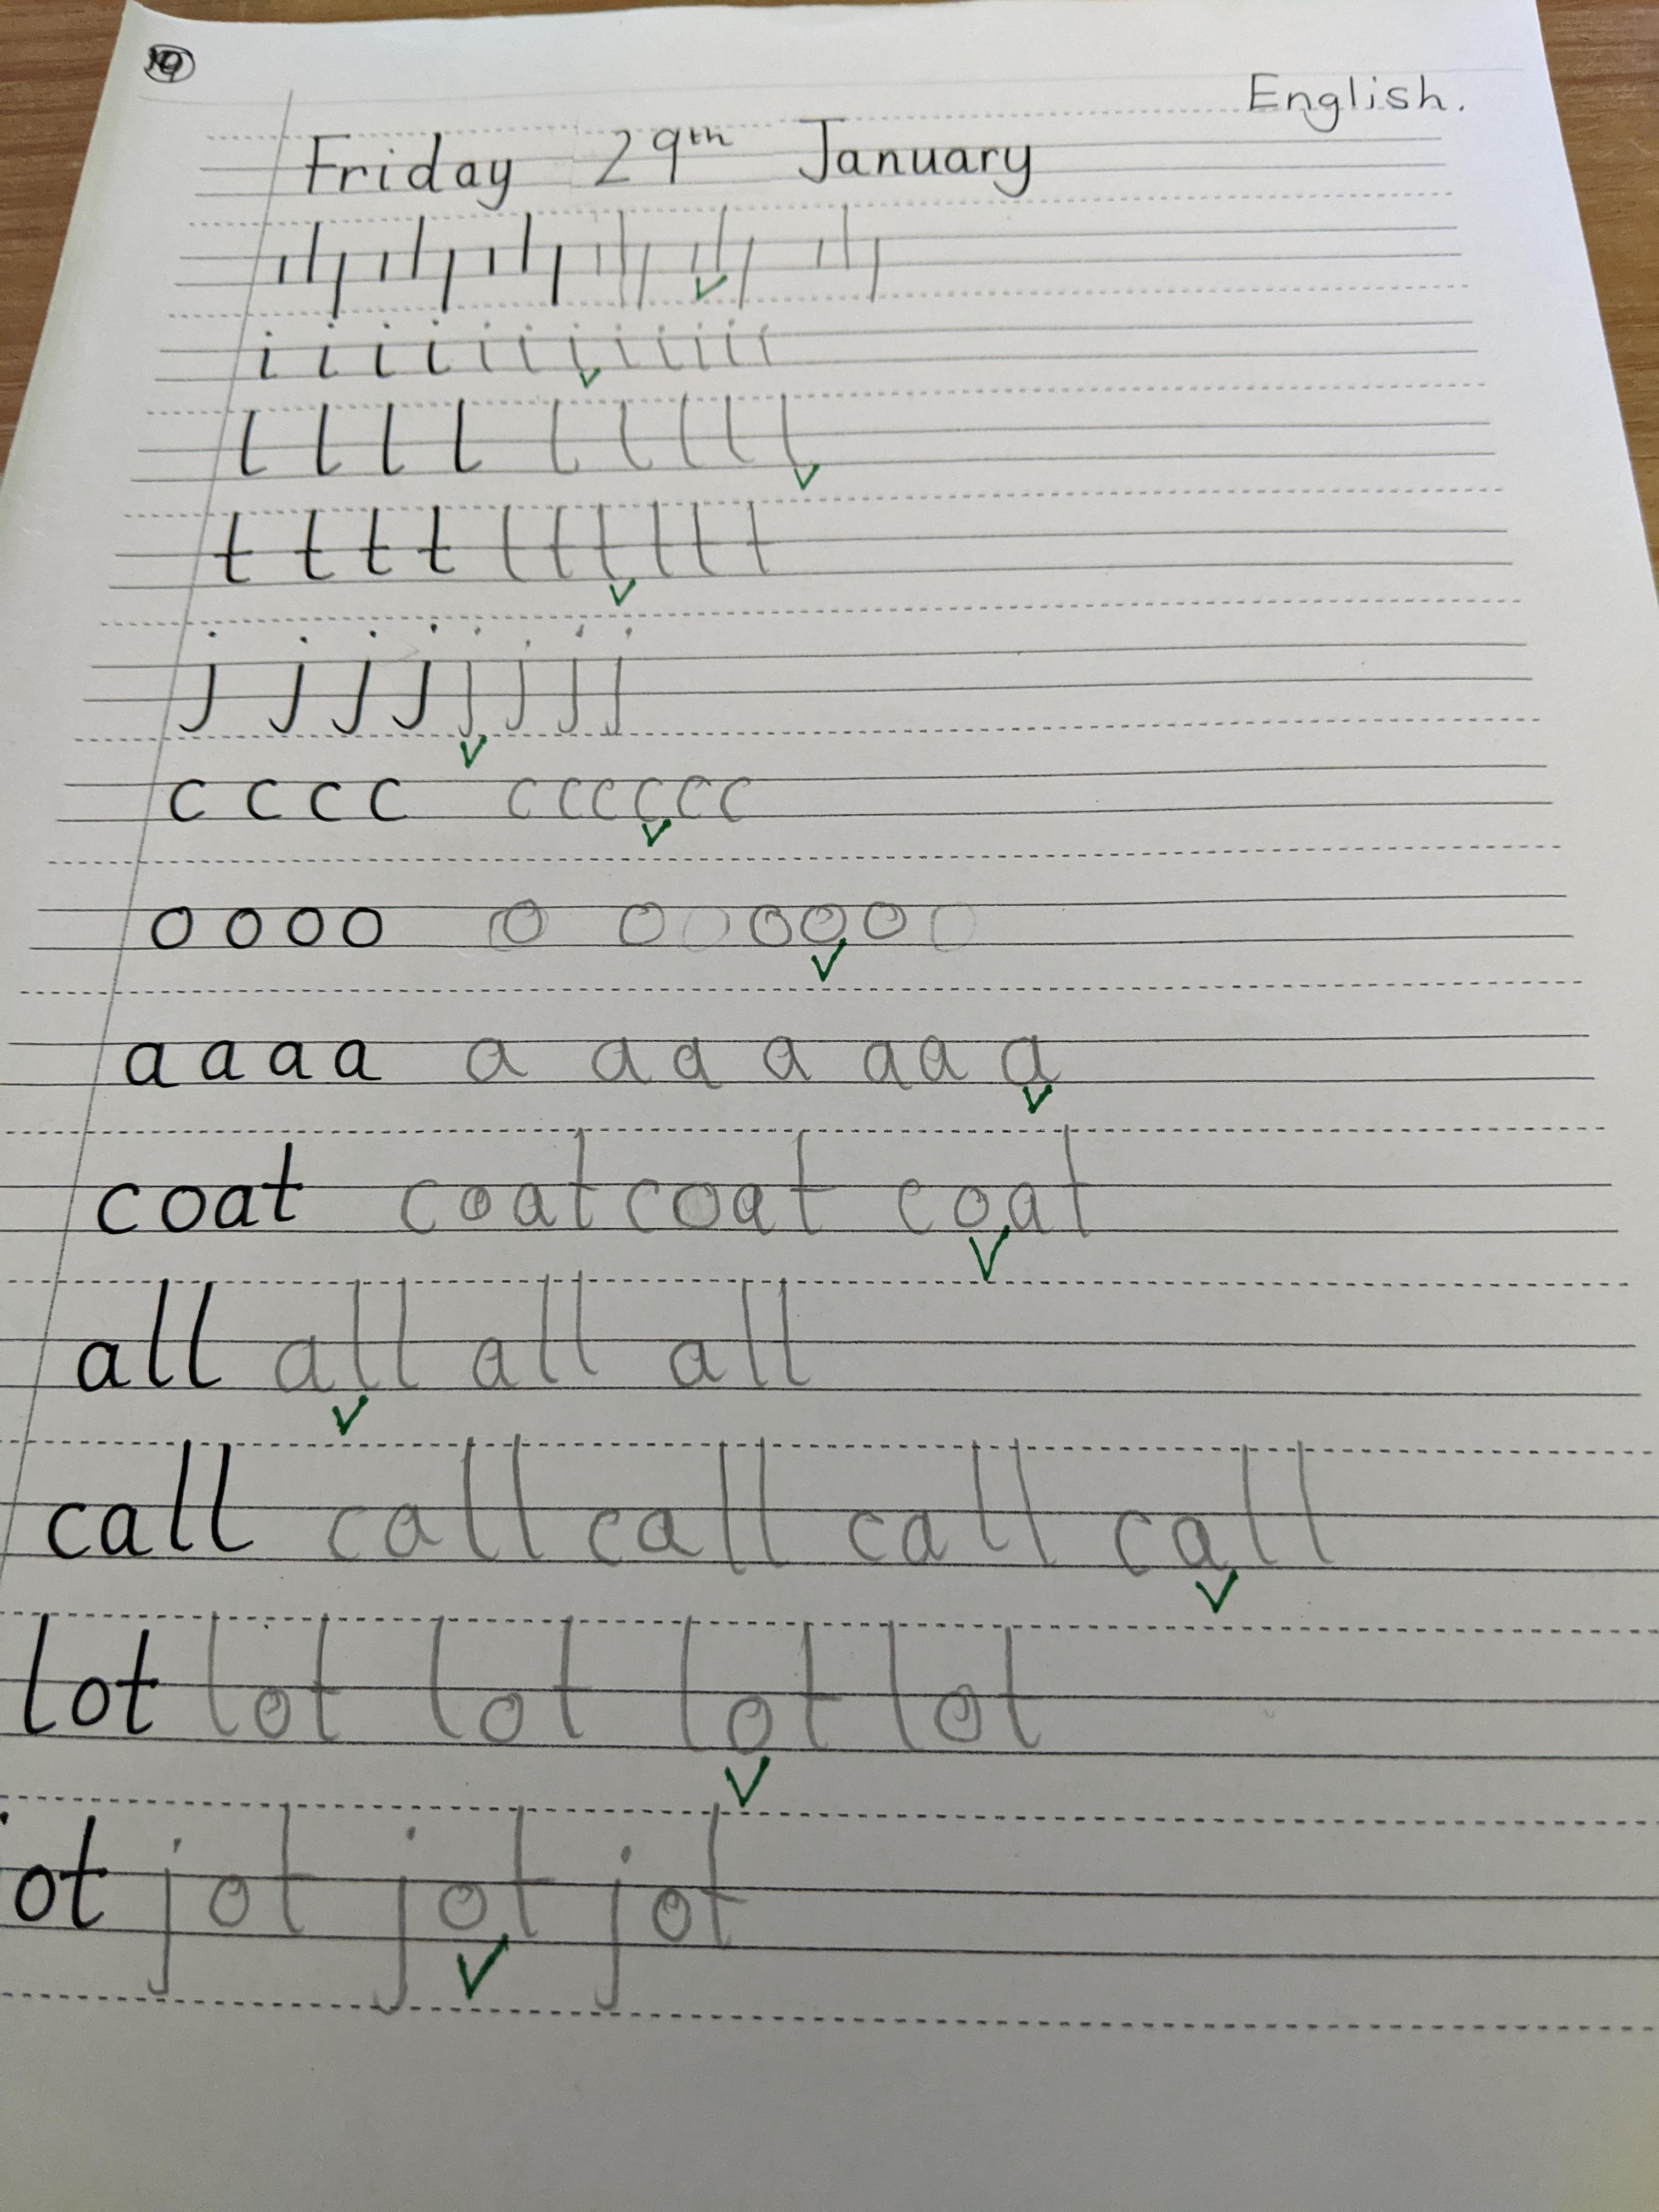 English.
Friday 29th January
i i i i i i i i i i i i
l l l l l l l l l
t t t t t t t t t t
j j j j j j j j
c c c c c c c c c c
o o o o o o o o o o o
a a a a a a a a a a a
coat coat coat coat
all all all all
call call call call call
lot lot lot lot lot
ot jot jot jot